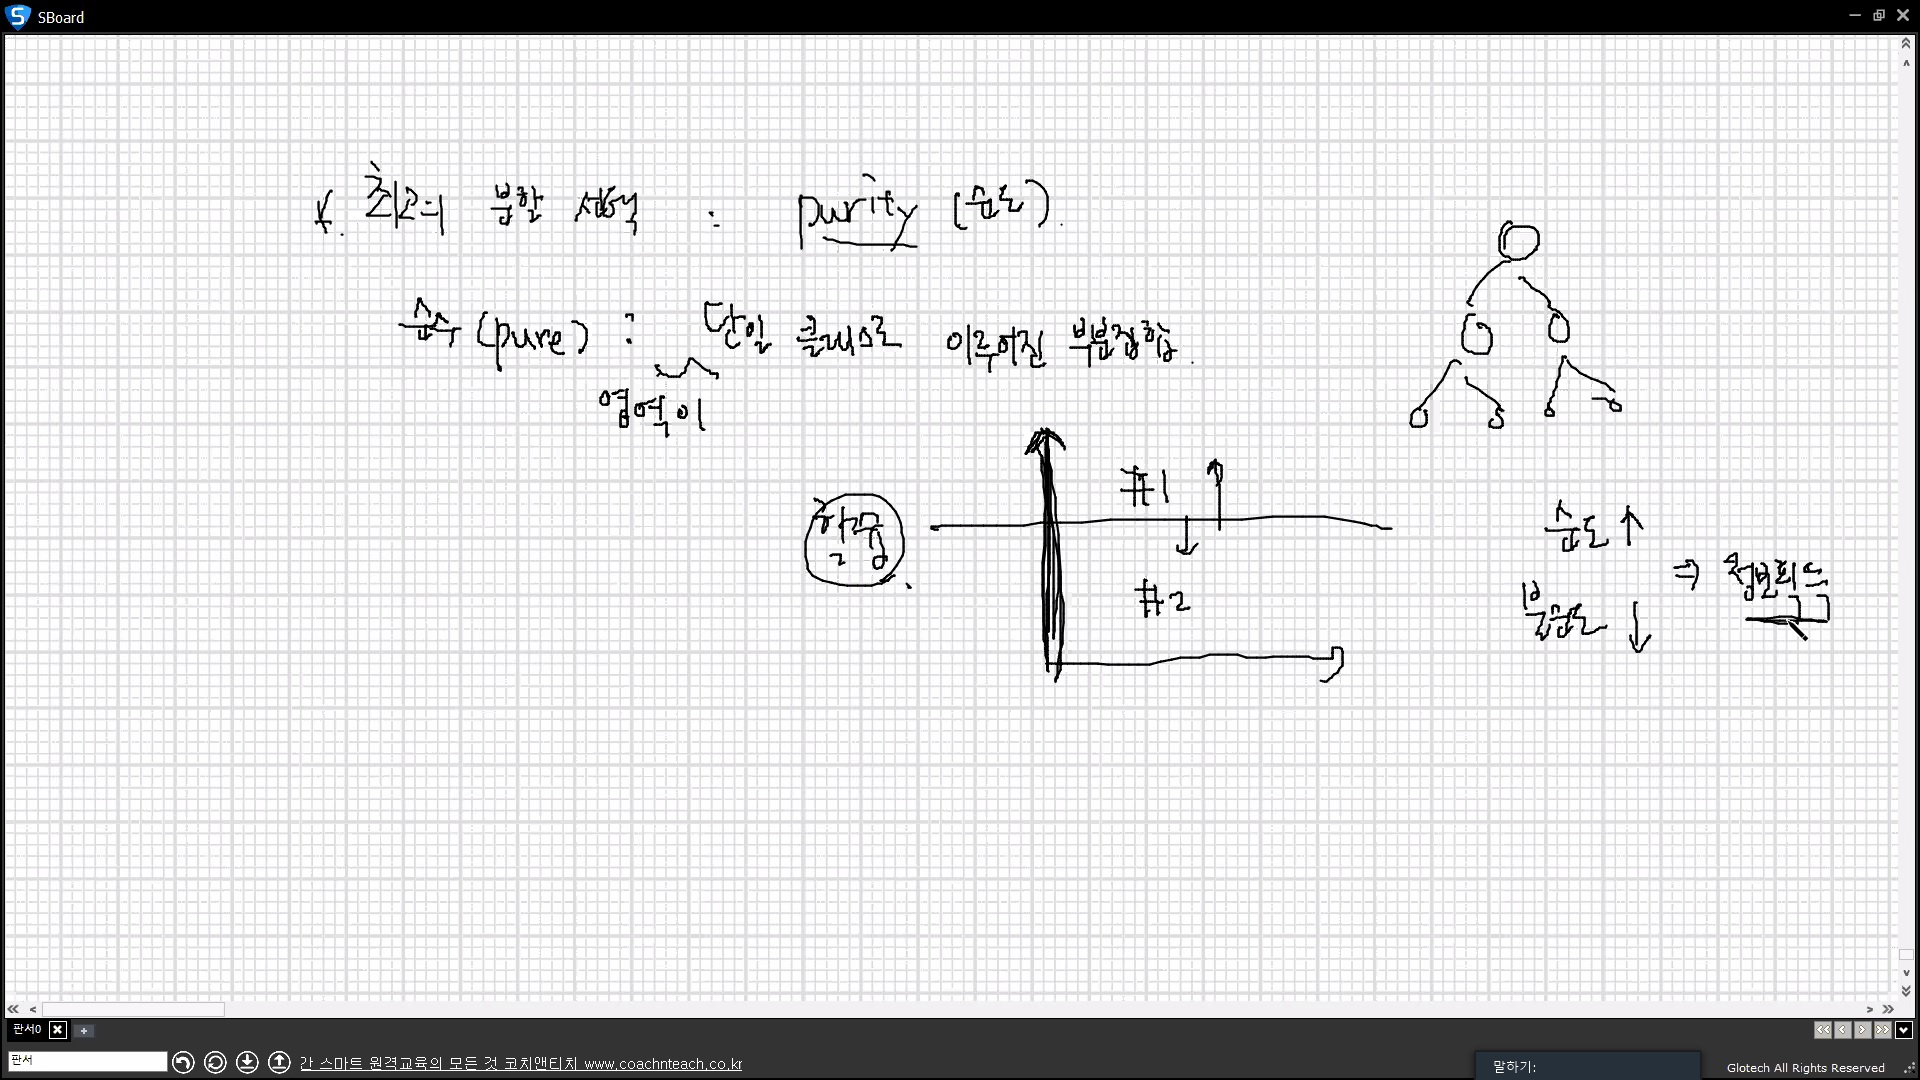 SBoard
최고의 분할 선택 : purity (순도).
순수 (pure) : 단일 클래스로 이루어진 부분집합.
영역이
#1
#2
순도 ↑
불순도 ↓
⇒
판서0
판서
간 스마트 원격교육의 모든 것 코치앤티치 www.coachnteach.co.kr
말하기:
Glotech All Rights Reserved